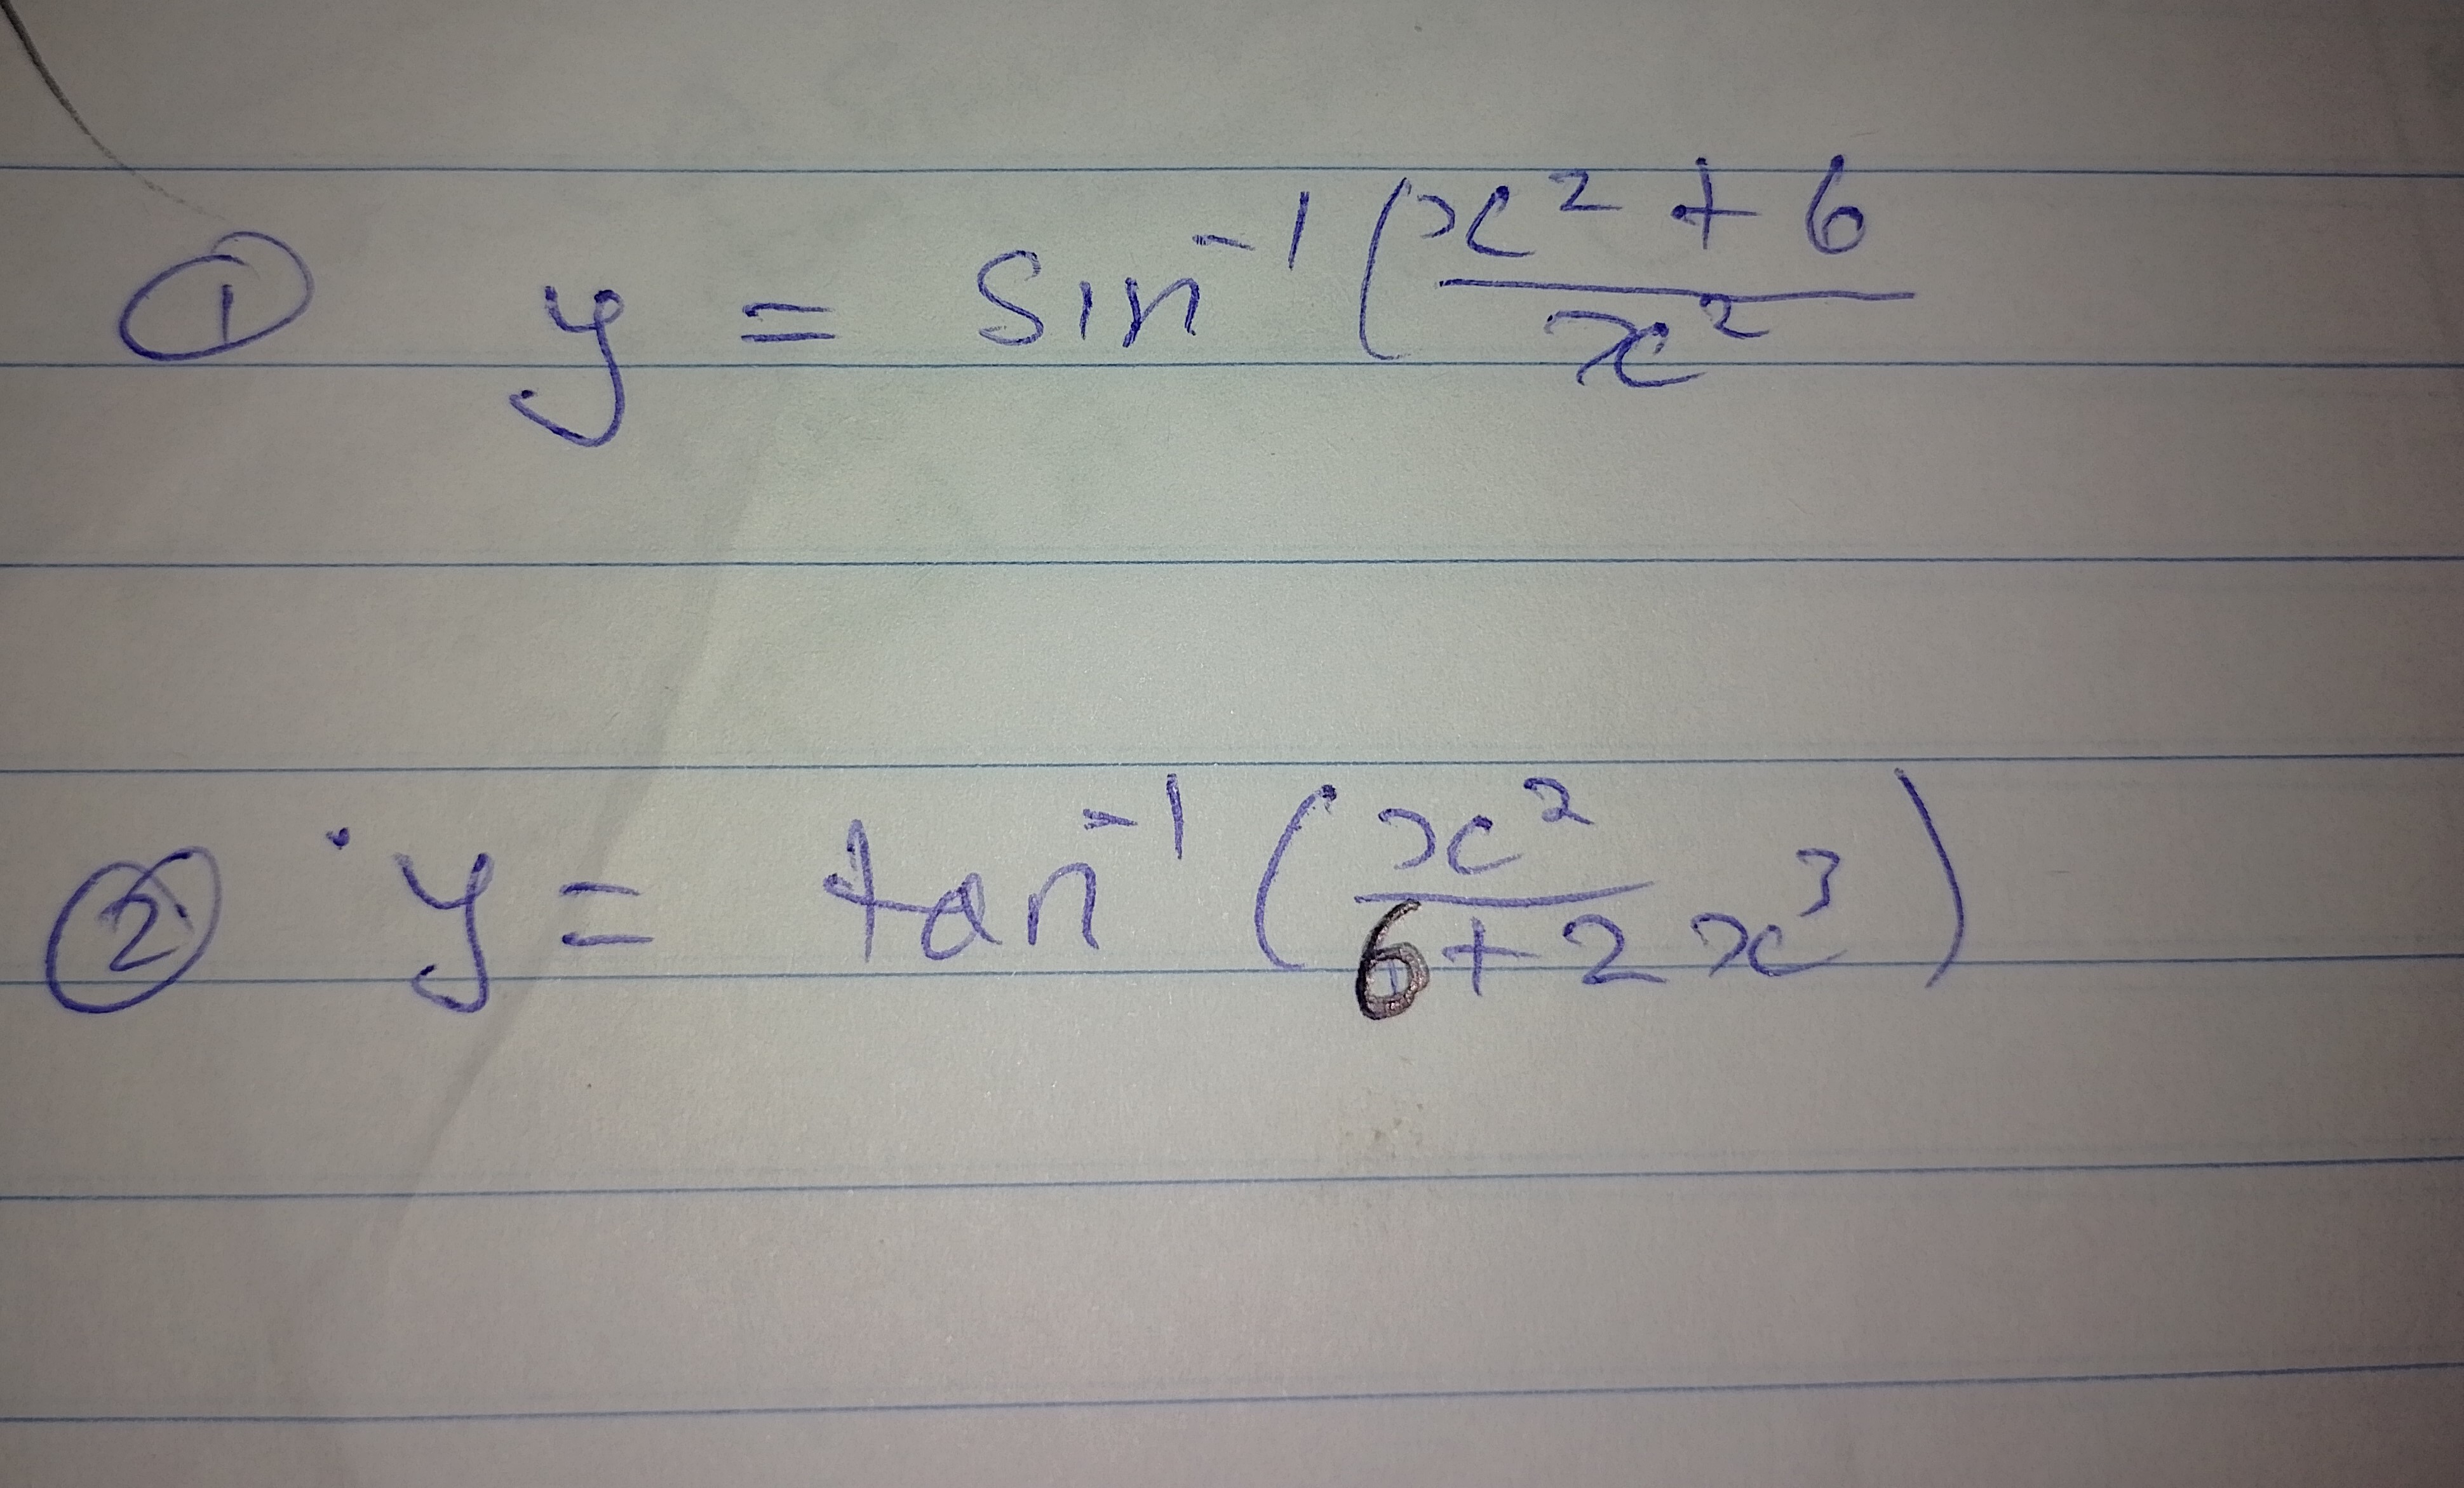 ① y = sin⁻¹ (x² + 6 / x²
② y = tan⁻¹ (x² / 6 + 2x³)